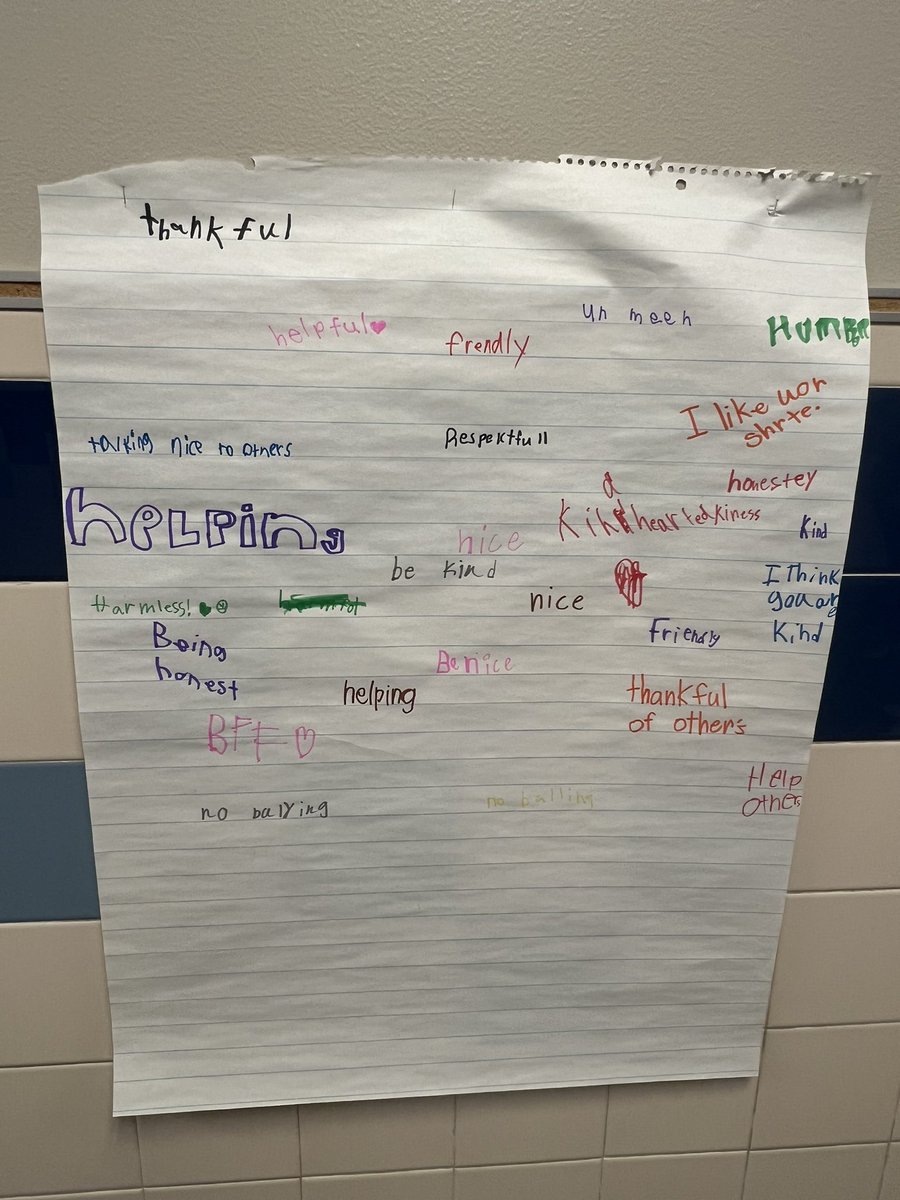 thankful
un meen
helpful
frendly
I like uor
shrte.
talking nice to others
Respektfull
honestey
d
Kinheartedkiness
helping
nice
Kind
be kind
I Think
you are
Kind
Harmless!
nice
Being
honest
Friendly
Be nice
helping
thankful
of others
BFF
Help
Others
no balying
no balling